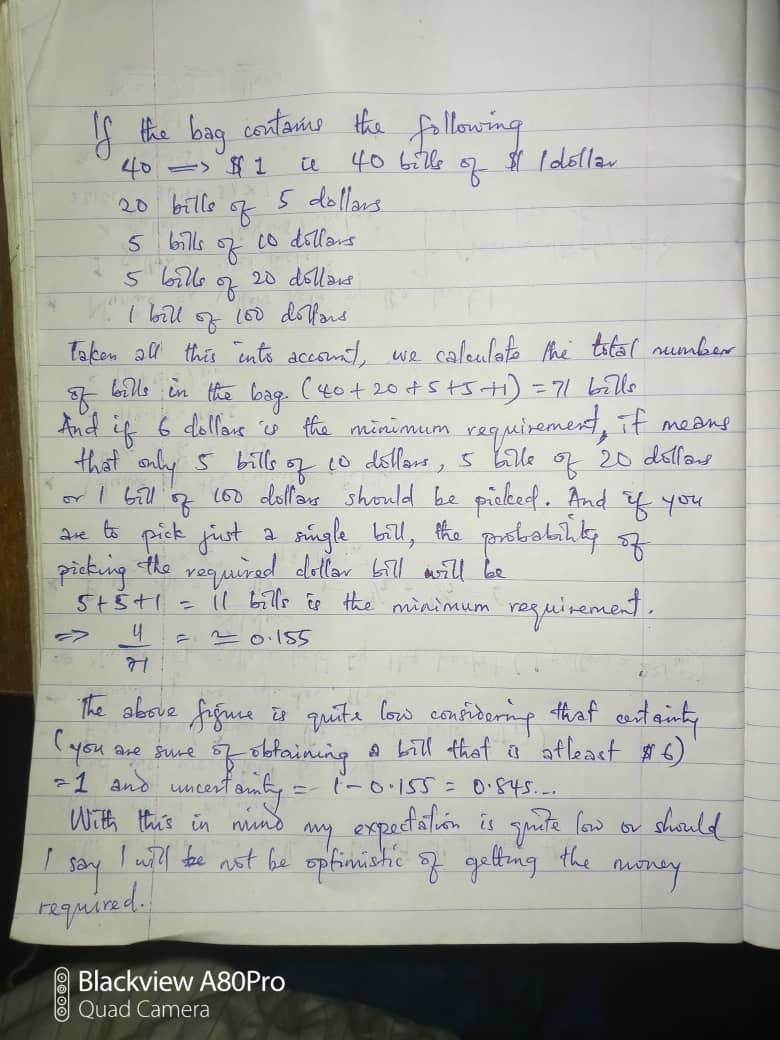 If the bag contains the following
40 => $1 ie 40 bills of $ 1 dollar
20 bills of 5 dollars
5 bills of 10 dollars
5 bills of 20 dollars
1 bill of 100 dollars
Taken all this into account, we calculate the total number
of bills in the bag. (40 + 20 + 5 + 5 + 1) = 71 bills
And if 6 dollars is the minimum requirement, it means
that only 5 bills of 10 dollars, 5 bills of 20 dollars
or 1 bill of 100 dollars should be picked. And if you
are to pick just a single bill, the probability of
picking the required dollar bill will be
5+5+1 = 11 bills is the minimum requirement.
=> 11/71 = ≃ 0.155
The above figure is quite low considering that certainty
(you are sure of obtaining a bill that is atleast $6)
=1 and uncertainty = 1-0.155 = 0.845...
With this in mind my expectation is quite low or should
I say I will be not be optimistic of getting the money
required.
Blackview A80Pro
Quad Camera